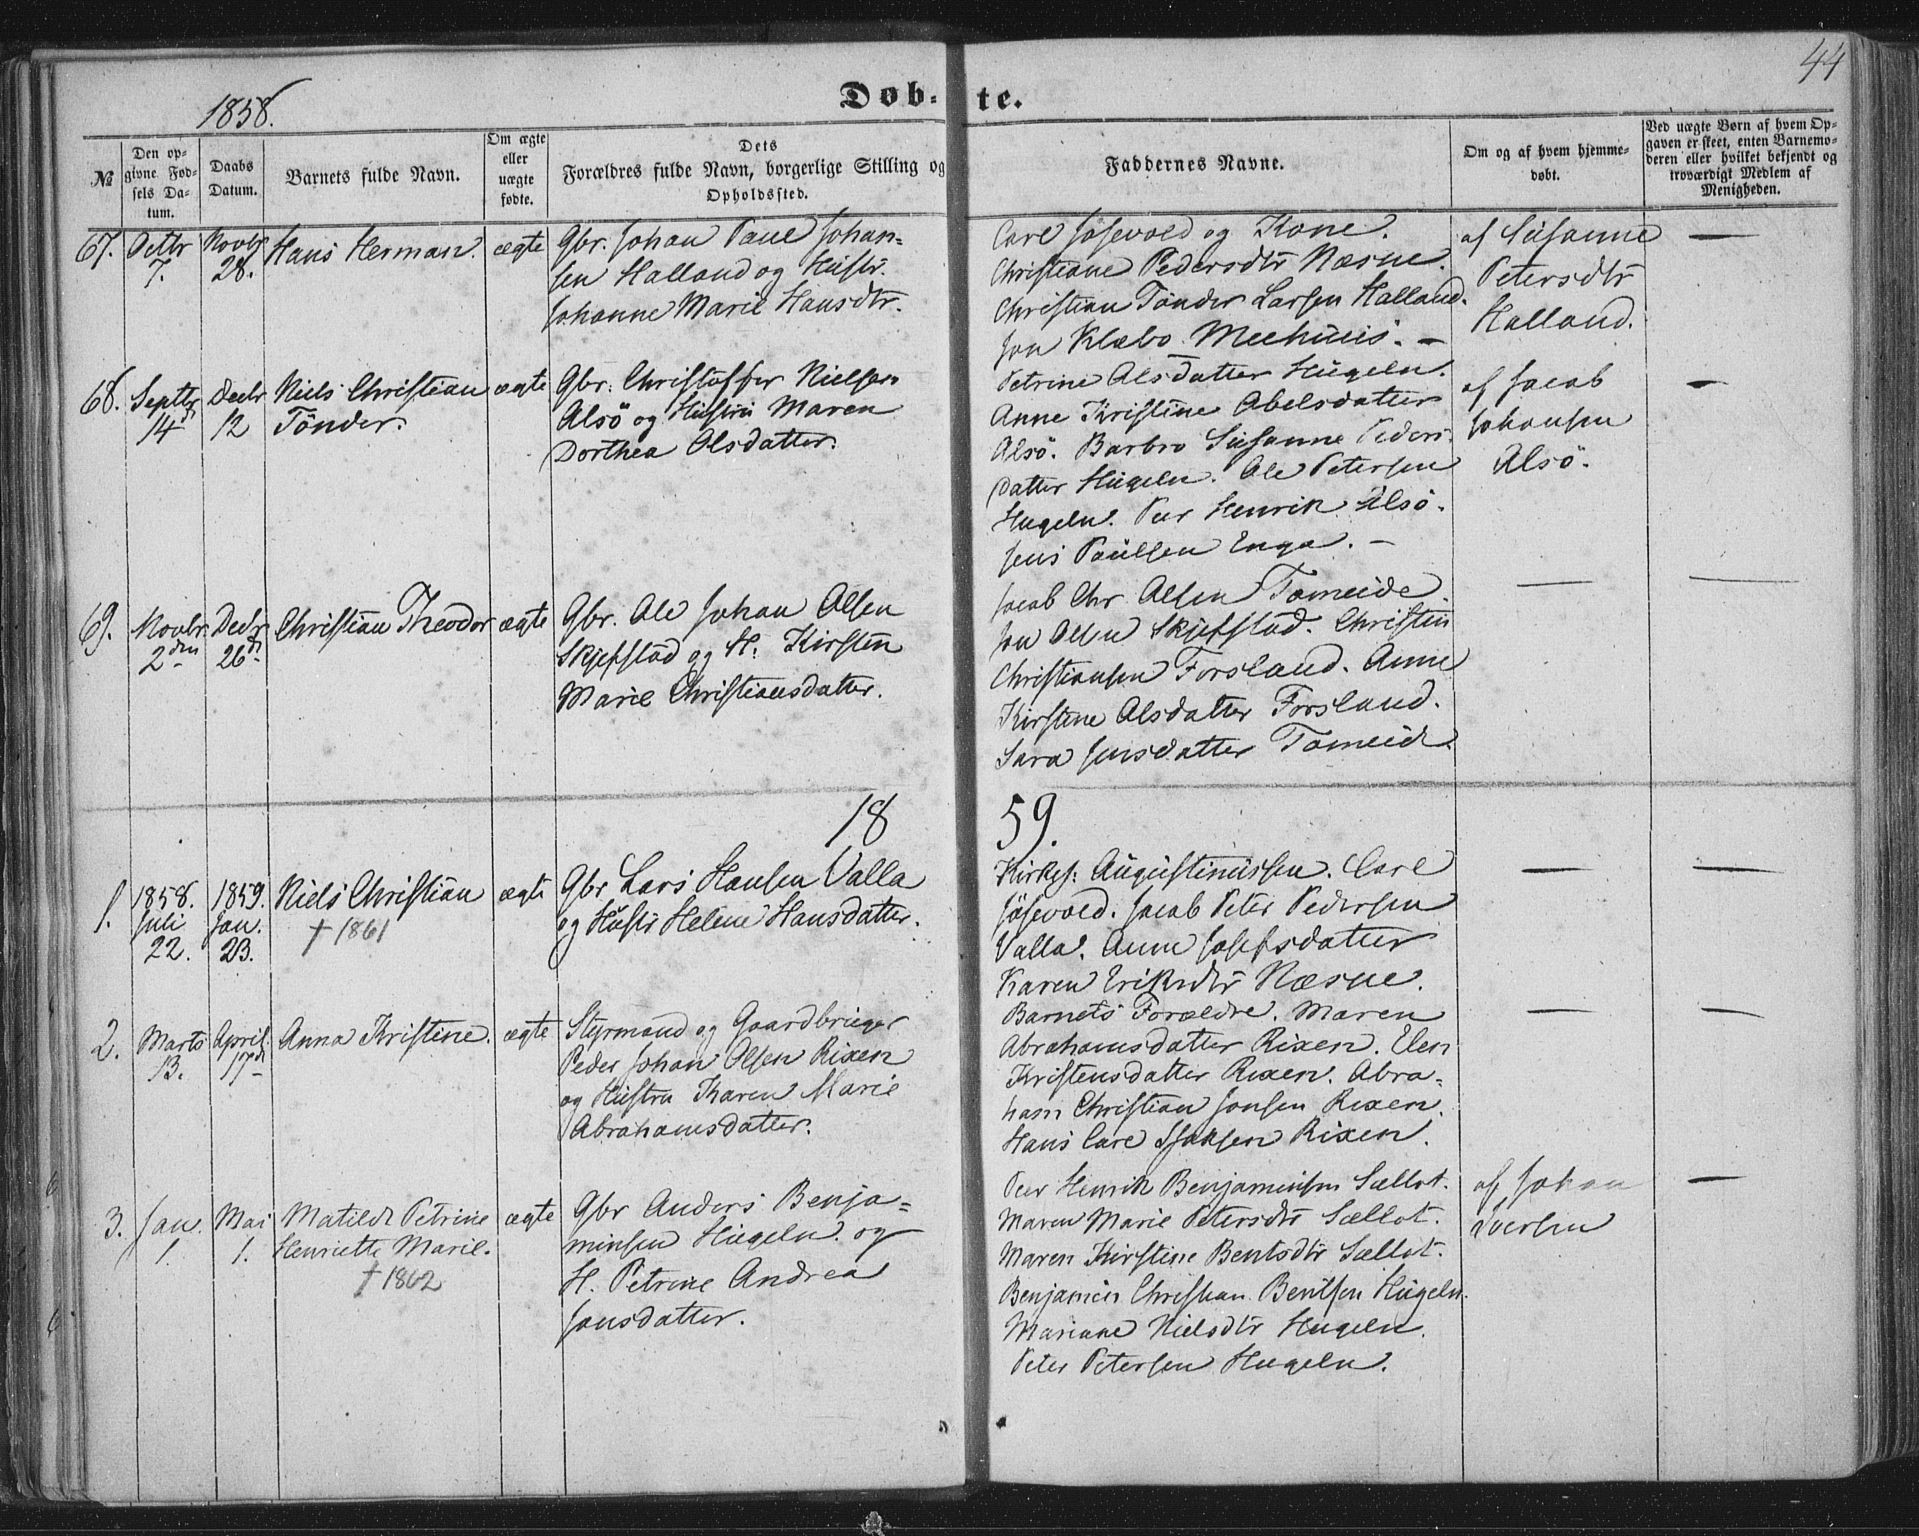 44
1858.
Døb-
te.
№
Den op-
givne Fød-
sels Da-
tum.
Daabs
Datum.
Barnets fulde Navn.
Om ægte
eller
uægte
fødte.
Dets
Forældres fulde Navn, borgerlige Stilling og
Opholdssted.
Faddernes Navne.
Om og af hvem hjemme-
døbt.
Ved uægte Børn af hvem Op-
gaven er skeet, enten Barnemo-
deren eller hvilket bekjendt og
troværdigt Medlem af
Menigheden.
67.
Octbr
7.
Novbr
28.
Hans Herman.
ægte
Gbr. Johan Paul Johan-
sen Halland og Hustr.
Johanne Marie Hansdtr.
Carl Jøsevold og Kone.
Christiane Pedersdtr Næsne.
Christian Tönder Larsen Halland.
Jon Klæbo Meehuus. —
af Susanne
Petersdtr
Halland.
—
68.
Septbr
14d
Decbr
12
Niels Christian
Tönder.
ægte
Gbr. Christoffer Nielsen
Alsö og Hustru Maren
Dorthea Olsdatter.
Petrine Olsdatter Hugeln.
Anne Kristine Abelsdatter
Alsö. Barbro Susanne Peders-
datter Hugeln. Ole Petersen
Hugeln. Peer Henrik Alsö.
Jens Paulsen Enga. —
af Jacob
Johansen
Alsö.
—
69.
Novbr
2den
Decbr
26d
Christian Theodor
ægte
Gbr. Ole Johan Olsen
Skjefstad og H. Kirsten
Marie Christiansdatter.
Jacob Chr Olsen Tomeide.
Jon Olsen Skjefstad. Christen
Christiansen Forsland. Anne
Kirstine Olsdatter Forsland.
Sara Jensdatter Tomeid.
—
—
18
59.
1.
1858.
Juli
22.
1859.
Jan.
23.
Niels Christian
† 1861
ægte
Gbr Lars Hansen Valla
og Hustr Helene Hansdatter.
Kirkes: Augustinussen. Carl
Jösevold. Jacob Peter Pedersen
Valla. Anne Josefsdatter
Karen Eriksdtr Næsne.
—
—
2.
Marts
13.
April
17d
Anna Kristine.
ægte
Styrmand og Gaardbruger
Peder Johan Olsen Rixen
og Hustru Karen Marie
Abrahamsdatter.
Barnets Forældre. Maren
Abrahamsdatter Rixen. Elen
Kristensdatter Rixen. Abra-
ham Christian Jonsen Rixen.
Hans Carl Isaksen Rixen.
—
—
3.
Jan.
1.
Mai
1.
Matilde Petrine
Henriette Marie.
† 1862
ægte
Gbr Anders Benja-
minsen Hugeln og
H. Petrine Andrea
Jonsdatter.
Peer Henrik Benjaminsen Sællot.
Maren Marie Petersdtr Sællot.
Maren Kirstine Bentsdtr Sællot.
Benjamin Christian Bentsen Hugeln.
Marianne Nielsdtr Hugeln.
Peter Petersen Hugeln.
af Johan
Iversen
—